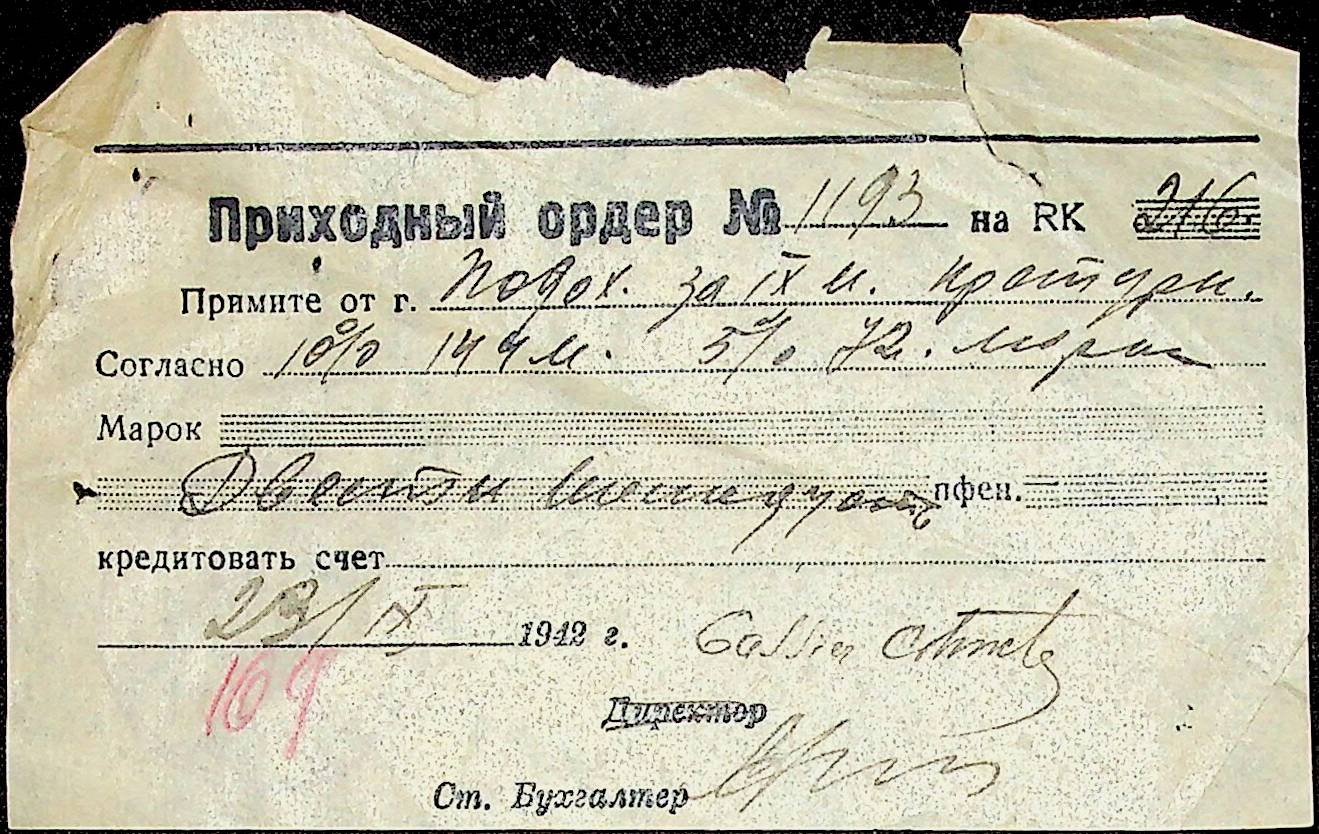 Приходный ордер № 1193 на RK 216
Примите от г. Подох. за IX м.
Согласно 10% 144 м. 5% 72
Марок
Двести шестнадцать пфен.
кредитовать счет
23/IX 1942 г.
169
Директор
Ст. Бухгалтер